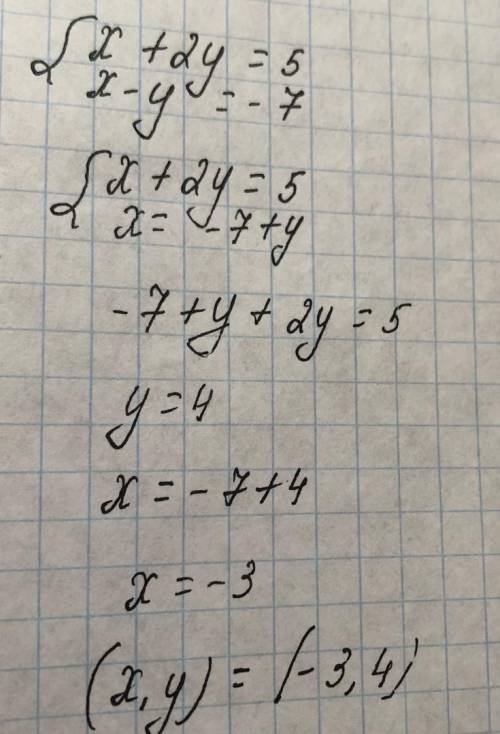 { x + 2y = 5
x - y = - 7
{ x + 2y = 5
x = - 7 + y
- 7 + y + 2y = 5
y = 4
x = - 7 + 4
x = - 3
(x, y) = (- 3, 4)